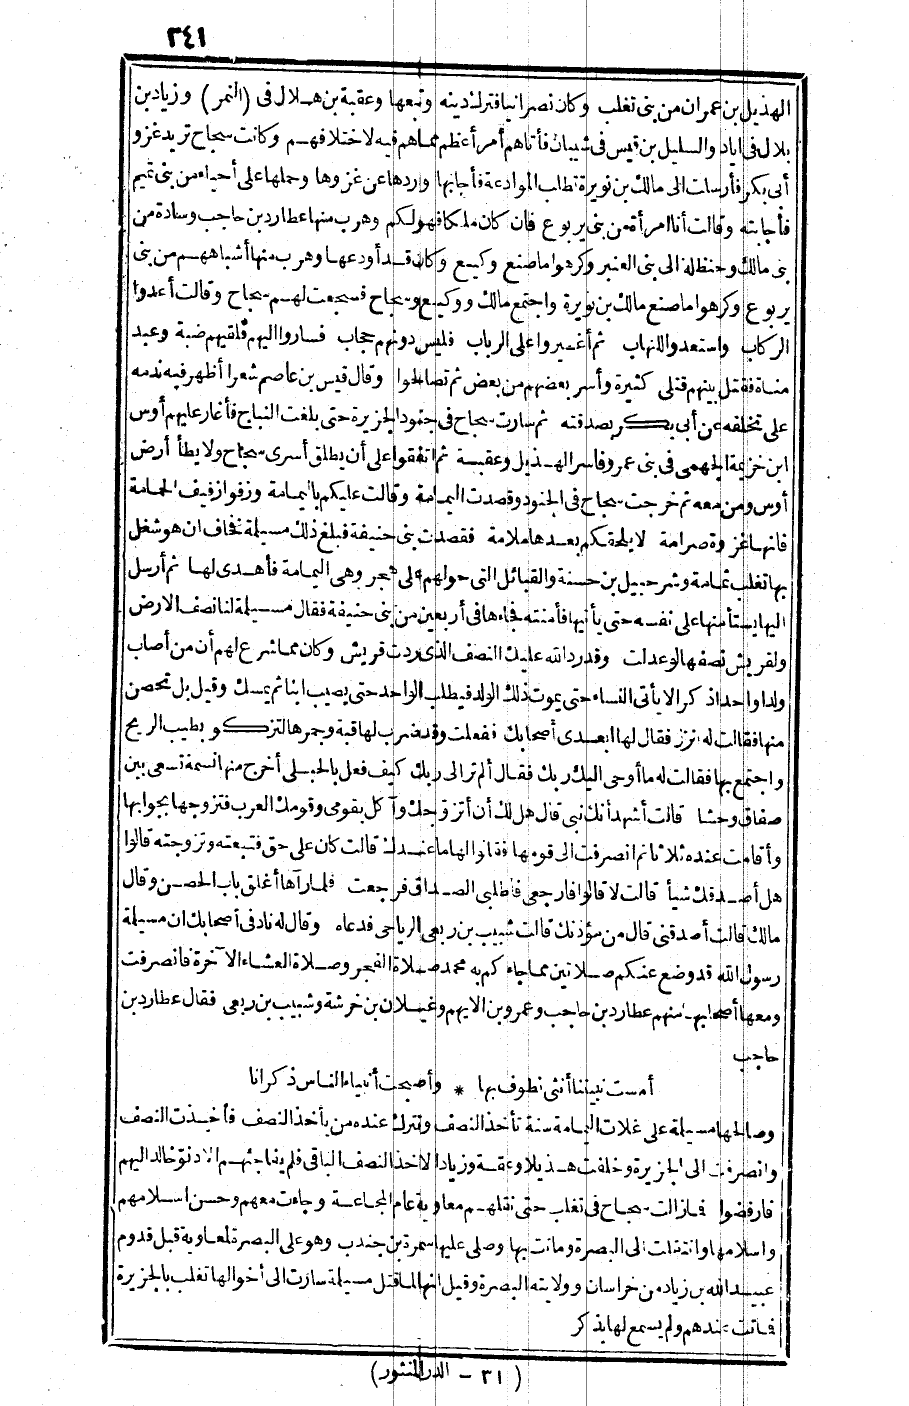 ٣٤١
الهذيل بن عمران من بنى تغلب وكان نصرانيا فترك دينه وتبعها وعقبة بن هلال فى (النمر) وزياد بن
بلال فى اياد والسليل بن قيس فى شيبان فأتاهم أمر أعظم مماهم فيه لاختلافهم وكانت سجاح تريد غزو
أبى بكر فأرسلت الى مالك بن نويرة تطلب الموادعة فأجابها وردها عن غزوها وحملها على أحياء من بنى تميم
فأجابته وقالت أنا امرأة من بنى يربوع فان كان ملكا فهو لكم وهرب منها عطارد بن حاجب وسادة من
بنى مالك وحنظلة الى بنى العنبر وكرهوا ما صنع وكيع وكان قد أودعها وهرب منها أشباههم من بنى
يربوع وكرهوا ما صنع مالك بن نويرة واجتمع مالك ووكيع وسجاح فسجعت لهم سجاح وقالت أعدوا
الركاب واستعدوا للنهاب ثم أغيروا على الرباب فليس دونهم حجاب فساروا اليهم فلقيهم ضبة وعبد
مناة فقتل بينهم قتلى كثيرة وأسر بعضهم من بعض ثم تصالحوا وقال قيس بن عاصم شعرا أظهر فيه ندمه
على تخلفه عن أبى بكر بصدقته ثم سارت سجاح فى جنود الجزيرة حتى بلغت النباج فأغار عليهم أوس
ابن خزيمة الهجمى فى بنى عمرو فاسر الهذيل وعقبة ثم اتفقوا على أن يطلق أسرى سجاح ولا يطأ أرض
أوس ومن معه ثم خرجت سجاح فى الجنود وقصدت اليمامة وقالت عليكم باليمامة وزفوا زفيف الحمامة
فانها غزوة صرامة لا يلحقكم بعدها ملامة فقصدت بنى حنيفة فبلغ ذلك مسيلمة فخاف ان هو شغل
بها تغلب ثمامة وشرحبيل بن حسنة والقبائل التى حولهم على هجر وهى اليمامة فأهدى لها ثم أرسل
اليها يستأمنها على نفسه حتى يأتيها فأمنته فجاءها فى أربعين من بنى حنيفة فقال مسيلمة لنا نصف الارض
ولقريش نصفها لو عدلت وقد رد الله عليك النصف الذى ردت قريش وكان مما شرع لهم أن من أصاب
ولدا واحدا ذكرا لا يأتى النساء حتى يموت ذلك الولد فيطلب الواحد حتى يصيب ابنا ثم يمسك وقيل بل تحصن
منها فقالت له انزل فقال لها ابعدى أصحابك ففعلت وقد ضرب لها قبة وجمرها لتزكو بطيب الريح
واجتمع بها فقالت له ما أوحى اليك ربك فقال ألم تر الى ربك كيف فعل بالحبلى أخرج منها نسمة تسعى بين
صفاق وحشا قالت أشهد أنك نبى قال هل لك أن أتزوجك وآكل بقومى وقومك العرب فتزوجها بجوابها
وأقامت عنده ثلاثا ثم انصرفت الى قومها فقالوا لها ما عندك قالت كان على حق فتبعته وتزوجته قالوا
هل أصدقك شيأ قالت لا قالوا فارجعى فاطلبى الصداق فرجعت فلما رآها أغلق باب الحصن وقال
مالك قالت أصدقنى قال من مؤذنك قالت شبيب بن ربعى الرياحى فدعاه وقال له ناد فى أصحابك ان مسيلمة
رسول الله قد وضع عنكم صلاتين مما جاءكم به محمد صلاة الفجر وصلاة العشاء الآخرة فانصرفت
ومعها أصحابها منهم عطارد بن حاجب وعمرو بن الايهم وغيلان بن خرشة وشبيب بن ربعى فقال عطارد بن
حاجب
أمست نبيتنا أنثى نطوف بها * وأصبحت أنبياء الناس ذكرانا
وصالحها مسيلمة على غلات اليمامة سنة تأخذ النصف وتترك عنده من يأخذ النصف فأخذت النصف
وانصرفت الى الجزيرة وخلفت هذيلا وعقة وزيادا لاخذ النصف الباقى فلم يفاجئهم الا دنو خالد اليهم
فارفضوا فمازالت سجاح فى تغلب حتى نقلهم معاوية عام المجاعة وجاءت معهم وحسن اسلامهم
واسلامها وانتقلت الى البصرة وماتت بها وصلى عليها سمرة بن جندب وهو على البصرة لمعاوية قبل قدوم
عبيد الله بن زياد من خراسان وولايته البصرة وقيل انها لما قتل مسيلمة سارت الى أخوالها تغلب بالجزيرة
فماتت عندهم ولم يسمع لها بذكر
(٣١ - الدر المنثور)